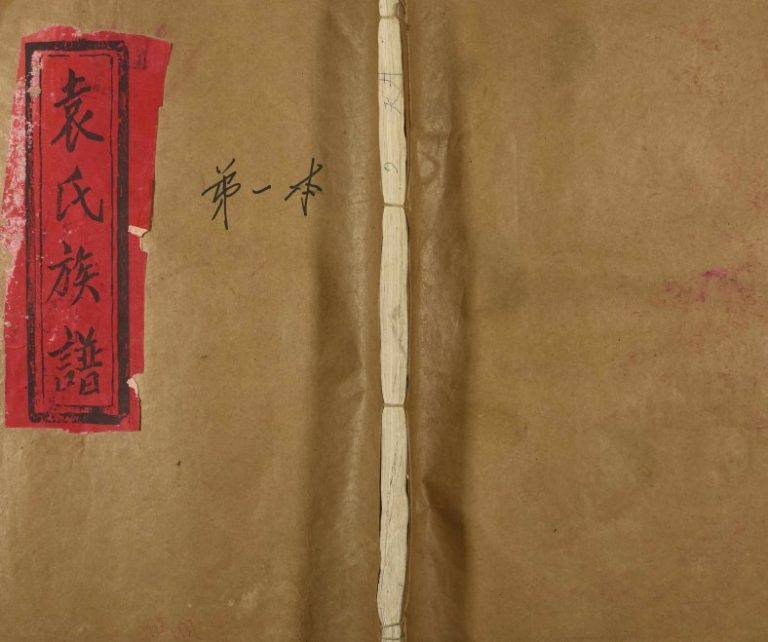 袁氏族譜
第一本